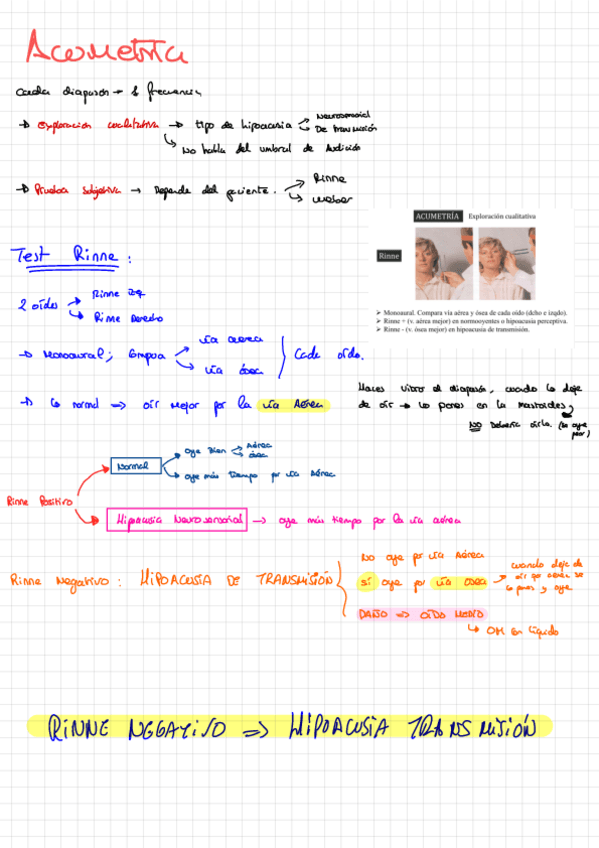 Acumetría
Cada diapasón → 1 frecuencia
→ Exploración cualitativa → tipo de hipoacusia
Neurosensorial
De transmisión
No habla del umbral de Audición
→ Prueba subjetiva → Depende del paciente.
Rinne
Weber
ACUMETRÍA Exploración cualitativa
Rinne
➢ Monoaural. Compara vía aérea y ósea de cada oído (dcho e izqdo).
➢ Rinne + (v. aérea mejor) en normooyentes o hipoacusia perceptiva.
➢ Rinne - (v. ósea mejor) en hipoacusia de transmisión.
Test Rinne:
2 oídos
Rinne Izq
Rinne Derecho
→ Monoaural; Compara
vía aerea
vía ósea
Cada oído.
→ Lo normal => oir mejor por la vía Aérea
Haces vibrar el diapasón, cuando lo deje
de oir → lo pones en la mastoides,
NO debería oirla. (lo oye
peor)
Rinne Positivo
Normal
oye bien
Aérea
ósea
oye más tiempo por vía Aérea
Hipoacusia Neurosensorial → oye más tiempo por la vía aérea
Rinne Negativo: HIPOACUSIA DE TRANSMISIÓN
No oye por vía Aérea
Sí oye por vía osea →
cuando deje de
oir por aerea se
lo pones y oye
DAÑO => OÍDO MEDIO
↳ OM con líquido
RINNE NEGATIVO => HIPOACUSIA TRANSMISIÓN